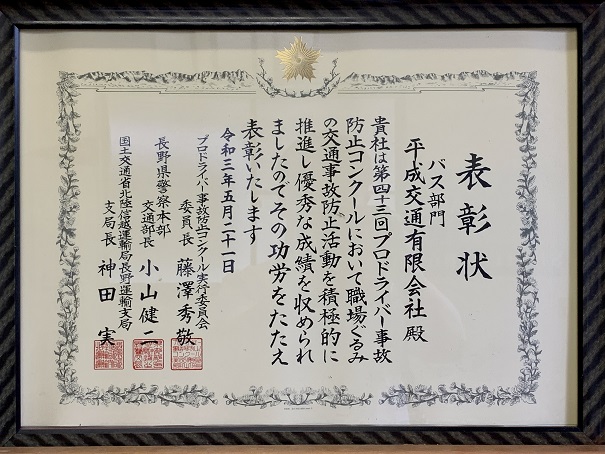 表彰状
バス部門
平成交通有限会社 殿
貴社は第四十三回プロドライバー事故
防止コンクールにおいて職場ぐるみ
の交通事故防止活動を積極的に
推進し優秀な成績を収められ
ましたのでその功労をたたえ
表彰いたします
令和三年五月二十一日
プロドライバー事故防止コンクール実行委員会
委員長 藤澤秀敬
長野県警察本部
交通部長 小山健二
国土交通省北陸信越運輸局長野運輸支局
支局長 神田実